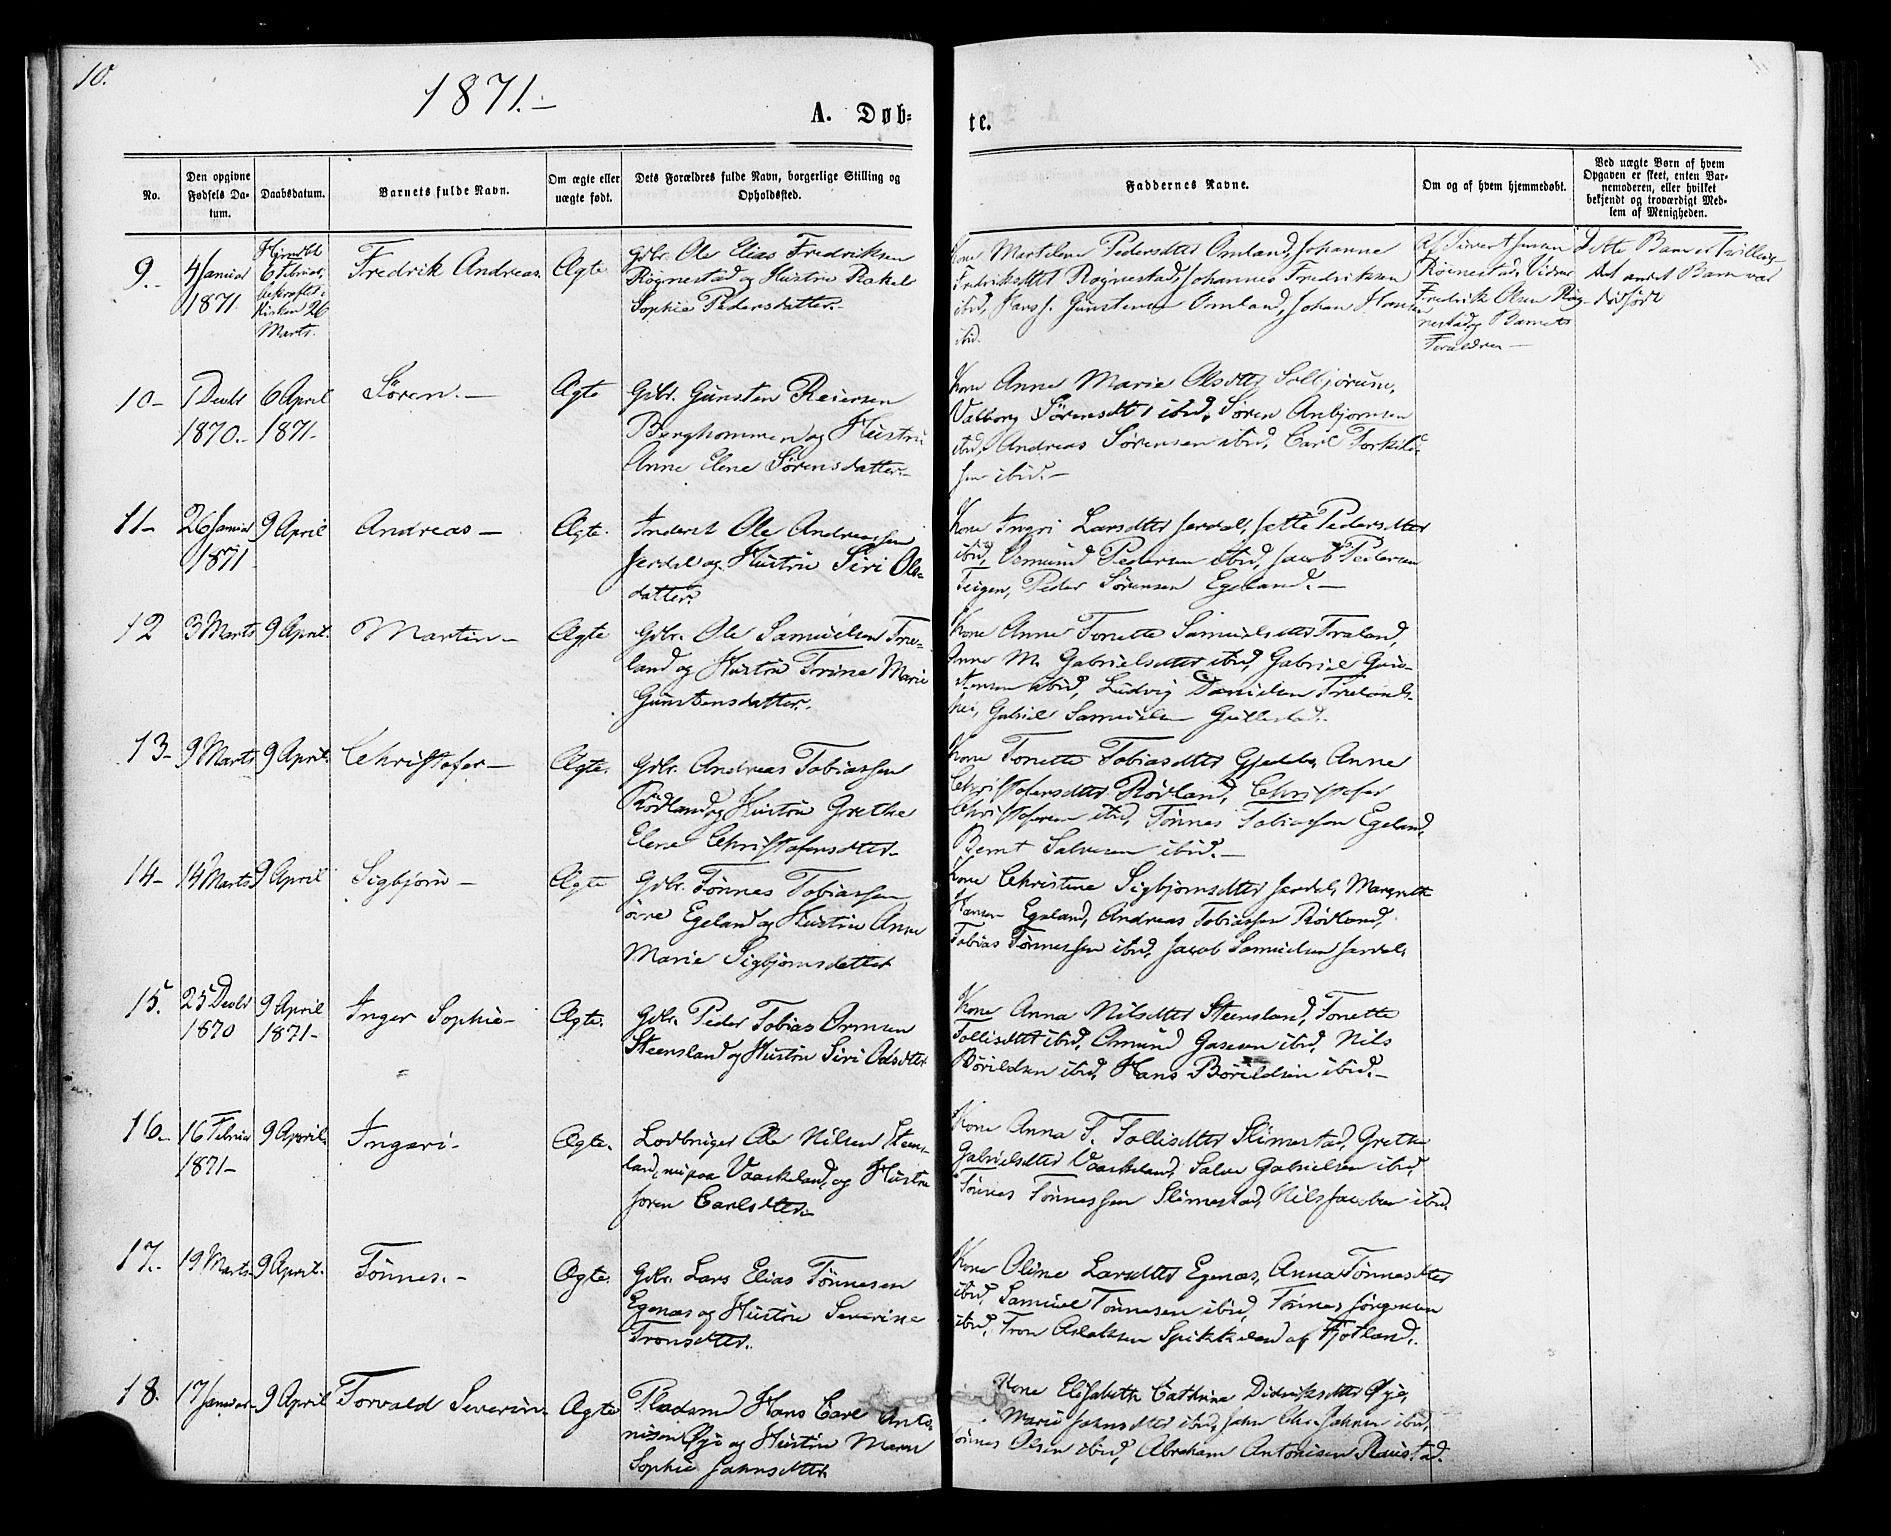 10.
1871.-
A. Døb-
te.
No.
Den opgivne Fødsels Da-
tum.
Daabsdatum.
Barnets fulde Navn.
Om ægte eller
uægte født.
Dets Forældres fulde Navn, borgerlige Stilling og
Opholdssted.
Faddernes Navne.
Om og af hvem hjemmedøbt.
Ved uægte Børn af hvem
Opgaven er skeet, enten Bar-
nemoderen, eller hvilket
bekjendt og troværdigt Med-
lem af Menigheden.
9.-
4 Januar
1871
Hjemdbt
6 Februar,
bekræftet i
Kirken 26
Marts.
Fredrik Andreas.
Ægte
Gdbr. Ole Elias Fredriksen
Røgnestad og Hustru Rakel
Sophie Pedersdatter.-
Kone Pedersdtter Omland, Johanne
Fredriksdtt Røgnestad, Johannes Fredriksen
ibid, Hans J. Gunstensen Omland, Johan Hansen
ibid.
Af Sivert Jensen
Røgnestad, Vidner
Fredrik Olsen Røg-
nestad og Barnets
Forældre -
Dette Barn er Tvilling
det andet Barn var
dødfødt
10-
1 Decbr
1870.-
6 April
1871-
Søren.-
Ægte
Gdbr. Gunsten Reiersen
Berghommen og Hustru
Anne Elene Sørensdatter.-
Kone Anne Marie Olsdtter Solbjørum,
Valborg Sørensdtt ibid, Søren Anbjørnsen
ibid, Andreas Sørensen ibid, Carl Torkild-
sen ibid.-
11-
26 Januar
1871
9 April
Andreas-
Ægte.
Inderst Ole Andreassen
Jerdal og Hustru Siri Ols-
datter.
Kone Ingri Larsdtter Jerdal, Jette Pedersdtter
ibid, Osmund Pedersen ibid, Jacob Pedersen
Teigen, Peder Sørensen Egeland.-
12
3 Marts
9 April.
Martin-
Ægte
Gdbr. Ole Samuelsen Tre-
land og Hustru Trine Marie
Gunstensdatter.
Kone Anne Tonette Samuelsdtter Træland,
Anne M. Gabrielsdtter ibid, Gabriel Gun-
stensen ibid, Ludvig Danielsen Trælands-
hei, Gabriel Samuelsen
13-
9 Marts
9 April.
Christofer-
Ægte.
Gdbr. Andreas Tobiassen
Rødland og Hustru Grethe
Elene Christofersdtter-
Kone Tonette Tobiasdtter Anne
Christofersdtter Rødland, Christofer
Christofersen ibid, Tønnes Tobiassen Egeland,
Bernt Salvesen ibid.-
14-
14 Marts
9 April
Sigbjørn-
Ægte
Gdbr. Tønnes Tobiassen
øvre Egeland og Hustru Anne
Marie Sigbjørnsdatter
Kone Christine Sigbjørnsdtter Jerdal, Margrethe
Hansen Egeland, Andreas Tobiassen Rødland,
Tobias Tønnessen ibid, Jacob Samuelsen Jerdal.
15.
25 Decbr
1870
9 April
1871-
Inger Sophie-
Ægte.
Gdbr. Peder Tobias Omsen
Steensland og Hustru Siri Odsdtter
Kone Anna Nilsdtter Steensland, Tonette
Tollisdtt ibid, Omund ibid, Nils
Børildsen ibid, Hans Børildsen ibid.-
16-
16 Februar
1871-
9 April.
Ingeri-
Ægte.
Lodbruger Ole Nilsen Steens-
land, nu paa Vaaskeland, og Hustru
Joren Carlsdtter-
Kone Anna T. Tollisdtter Slimestad, Grethe
Gabrielsdtter Vaaskeland, Salve Gabrielsen ibid,
Tønnes Tønnessen Slimestad, Nils Jacobsen ibid.
17.-
19 Marts.
9 April.
Tønnes.-
Ægte.
Gdbr. Lars Elias Tønnesen
Egenæs og Hustru Severine
Tronsdtter.
Kone Oline Larsdtter Egenæs, Anna Tønnesdtter
ibid, Samuel Tønnesen ibid, Tønnes Jørgensen
ibid, Tron Aslaksen af Fjotland.
18.
17 Januar-
9 April
Torvald Severin.
Ægte
Pladsm Hans Carl Anto-
nisen Øye og Hustru Maren
Sophie Jahnsdtter
Kone Elisabeth Cathrine Didriksdtter Øye,
Marie Jahnsdtter ibid, Jahn Jahnsen ibid,
Tønnes Olsen ibid, Abraham Antonisen Raustad.